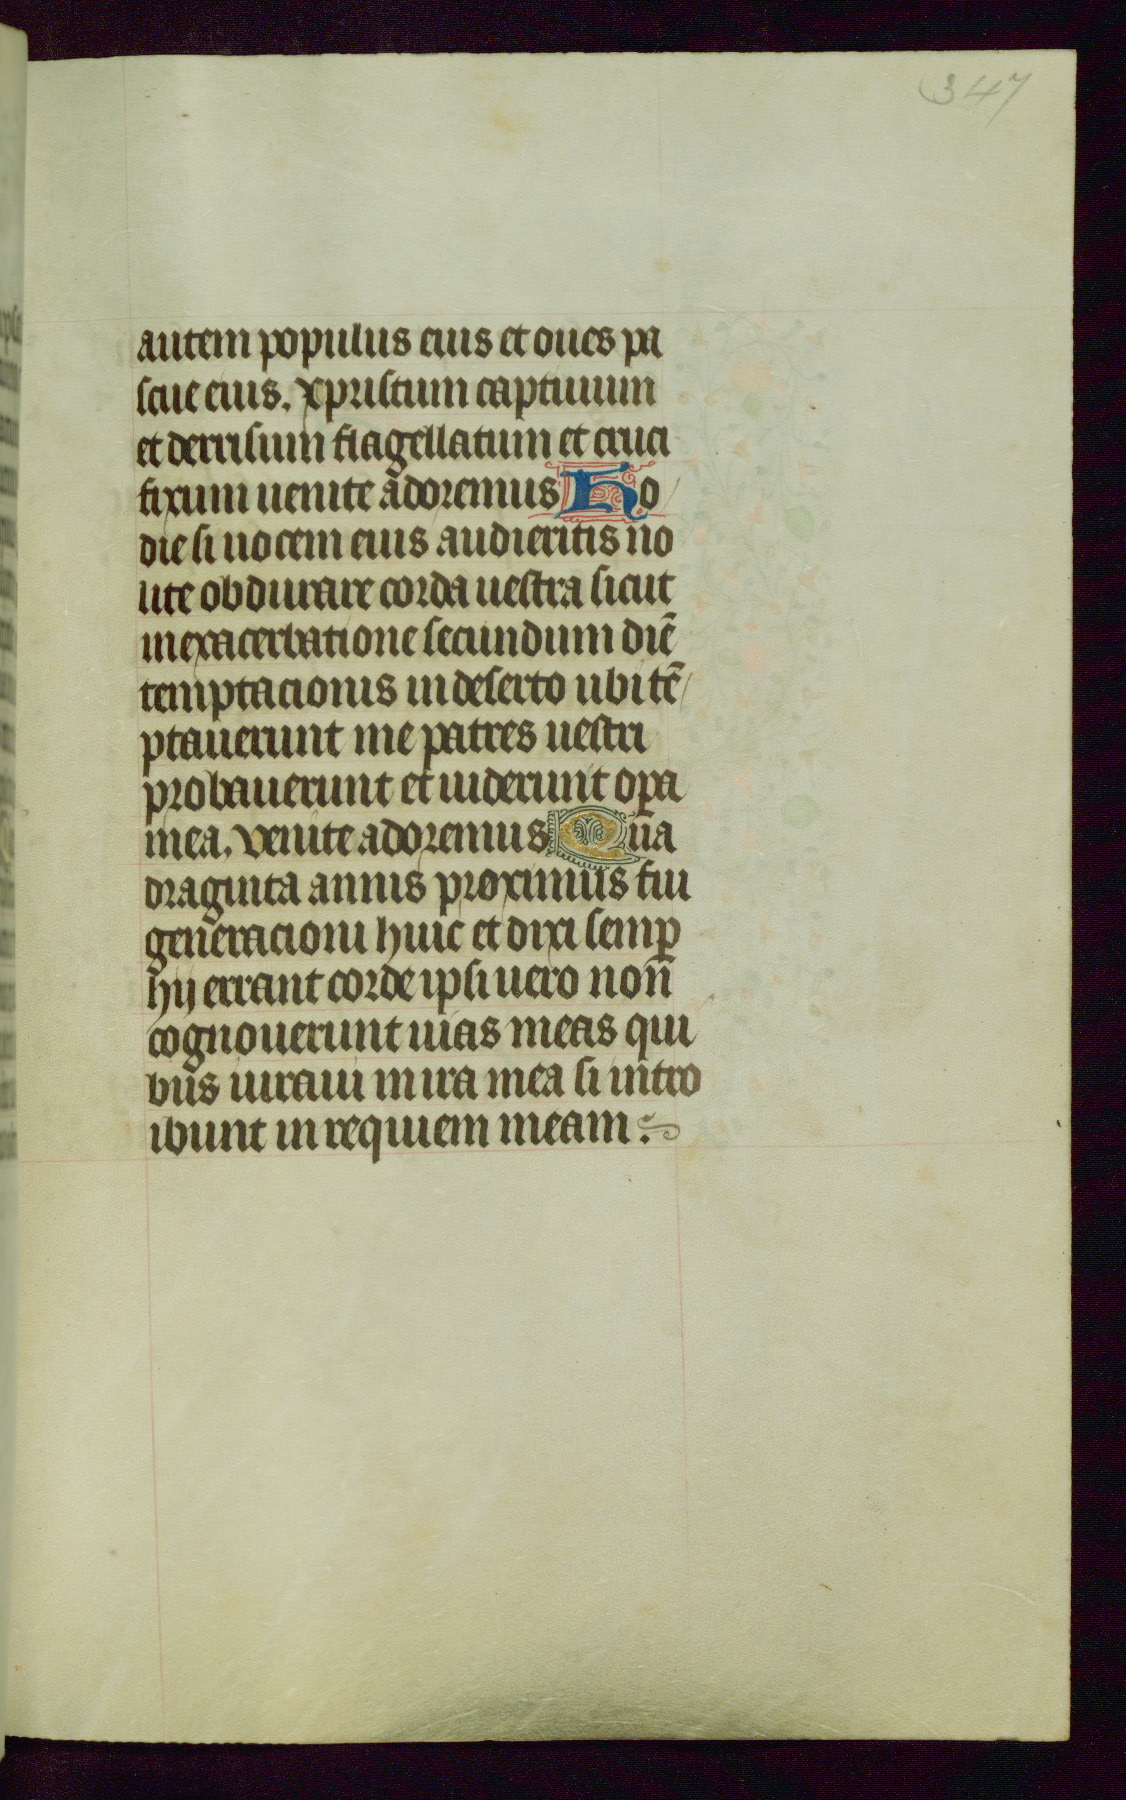 347
autem populus eius et oues pa
scue eius. xpristum captiuum
et derrisum flagellatum et cruci
fixum uenite adoremus Ho
die si uocem eius audieritis no
lite obdurare corda uestra sicut
in exacerbatione secundum diē
temptacionis in deserto ubi tē
ptauerunt me patres uestri
probauerunt et uiderunt oꝑa
mea. venite adoremus Qua
draginta annis proximus fui
generacioni huic et dixi semꝑ
hij errant corde ipsi uero non
cognouerunt uias meas qui
bus iuraui in ira mea si intro
ibunt in requiem meam.